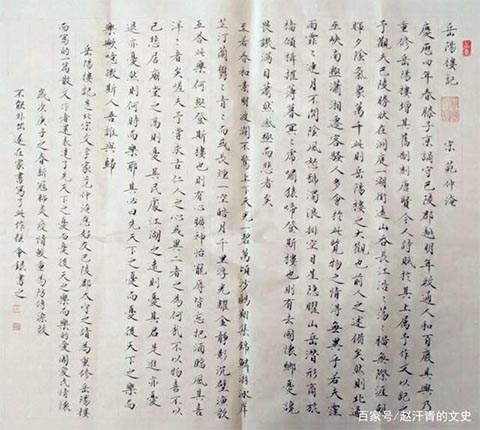 岳陽樓記 宋 范仲淹
慶曆四年春滕子京謫守巴陵郡越明年政通人和百廢具興乃
重修岳陽樓增其舊制刻唐賢今人詩賦於其上屬予作文以記之
予觀夫巴陵勝狀在洞庭一湖銜遠山吞長江浩浩蕩蕩橫無際涯朝
輝夕陰氣象萬千此則岳陽樓之大觀也前人之述備矣然則北通
巫峽南極瀟湘遷客騷人多會於此覽物之情得無異乎若夫霪
雨霏霏連月不開陰風怒號濁浪排空日星隱耀山岳潛形商旅
檣傾楫摧薄暮冥冥虎嘯猿啼登斯樓也則有去國懷鄉憂讒
畏譏滿目蕭然感極而悲者矣
至若春和景明波瀾不驚上下天光一碧萬頃沙鷗翔集錦鱗游泳岸
芷汀蘭青青而或長煙一空皓月千里浮光耀金靜影沉璧漁歌
互答此樂何極登斯樓也則有心曠神怡寵辱皆忘把酒臨風其喜
洋洋者矣嗟夫予嘗求古仁人之心或異二者之為何哉不以物喜不以
己悲居廟堂之高則憂其民處江湖之遠則憂其君是進亦憂
退亦憂然則何時而樂耶其必曰先天下之憂而憂後天下之樂而
樂歟噫微斯人吾誰與歸
岳陽樓記是北宋文學家范仲淹應好友巴陵郡太守之請為重修岳陽樓
而寫的一篇散文作者表達了先天下之憂而憂後天下之樂而樂的愛國愛民情懷
歲次庚子之春新冠肺炎疫情嚴重為防傳染故
不能外出遂在家書寫了此作任會銀書之
百家号/赵汗青的文史